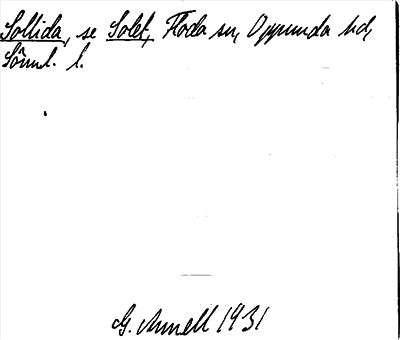 Sollida, se Solet, Floda sn, Oppunda hd,
Södml. l.
G. Annell 1931